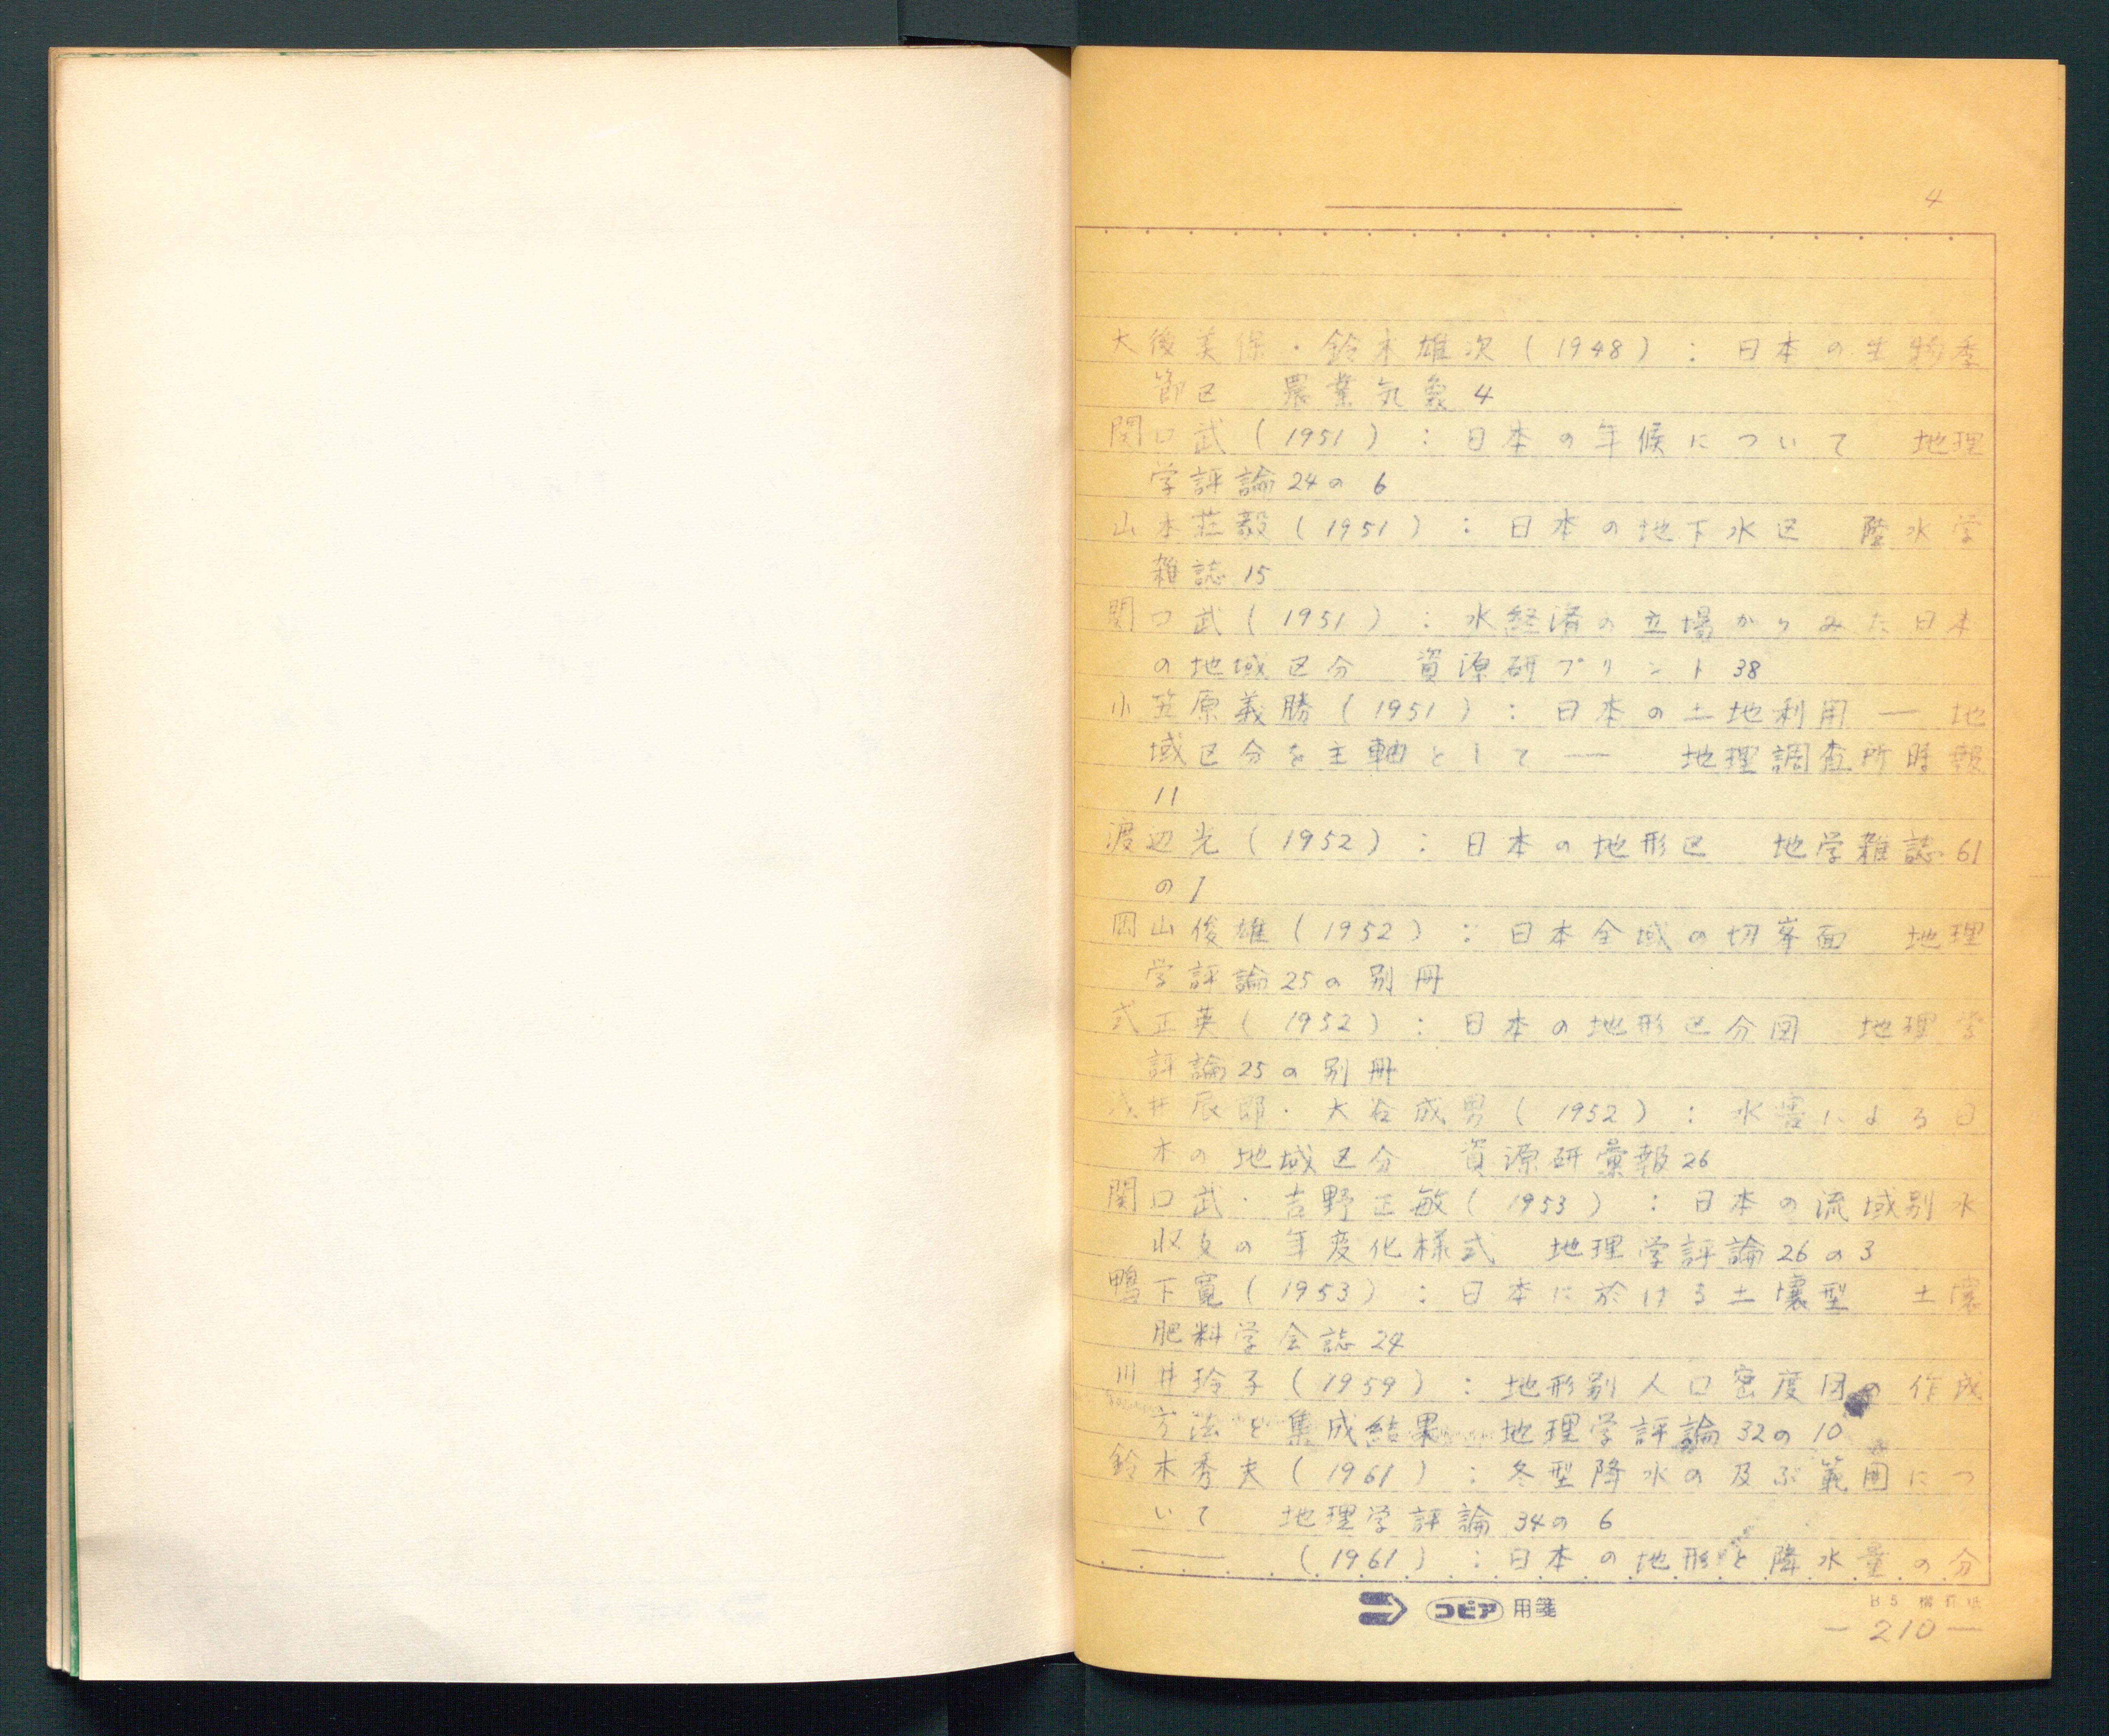 4
大後美保・鈴木雄次(1948):日本の生物季
節区 農業気象4
関口武(1951):日本の年候について 地理
学評論24の6
山本荘毅(1951):日本の地下水区 陸水学
雑誌15
関口武(1951):水経済の立場からみた日本
の地域区分 資源研プリント38
小笠原義勝(1951):日本の土地利用―地
域区分を主軸として― 地理調査所時報
11
渡辺光(1952):日本の地形区 地学雑誌61
の1
岡山俊雄(1952):日本全域の切峯面 地理
学評論25の別冊
式正英(1952):日本の地形区分図 地理学
評論25の別冊
浅井辰郎・大谷成男(1952):水害による日
本の地域区分 資源研彙報26
関口武・吉野正敏(1953):日本の流域別水
収支の年変化様式 地理学評論26の3
鴨下寛(1953):日本に於ける土壌型 土壌
肥料学会誌24
川井玲子(1959):地形別人口密度図の作成
方法と集成結果 地理学評論32の10
鈴木秀夫(1961):冬型降水の及ぶ範囲につ
いて 地理学評論34の6
――(1961):日本の地形と降水量の分
コピア 用箋
B5
―210―